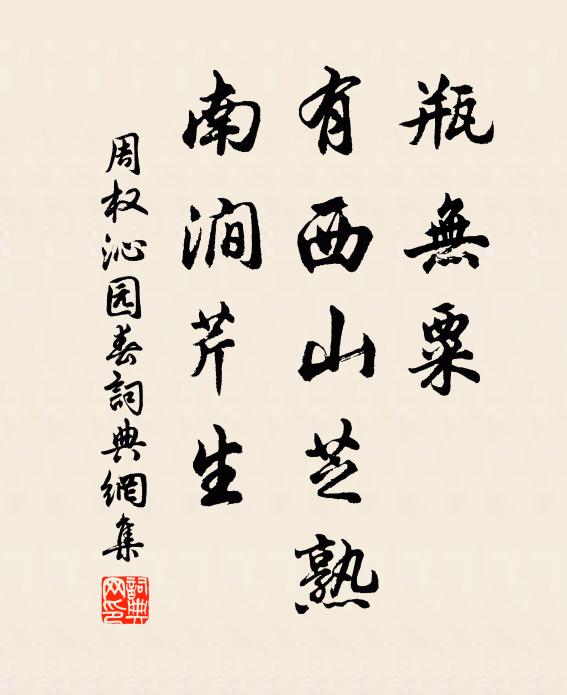 瓶無粟
有西山芝熟
南澗芹生
周权沁园春詞典網集
詞典網印